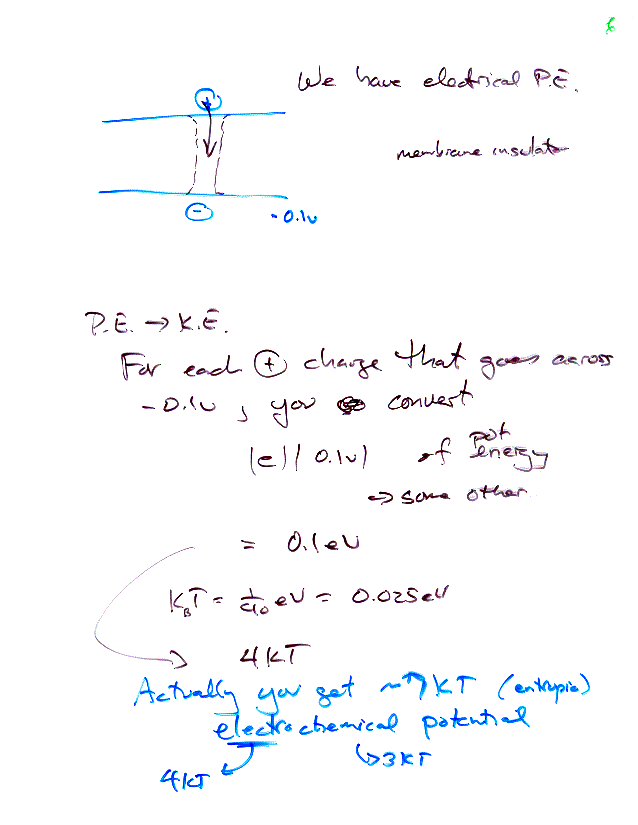 6
We have electrical P.E.
+
membrane insulator
−
-0.1v
P.E. → K.E.
For each ⊕ charge that goes across
-0.1v, you convert
|e|(0.1v) of pot energy
⇒ some other
= 0.1eV
K_BT = 1/40 eV = 0.025eV
4KT
Actually you get ~7KT (entropic)
electrochemical potential
4KT
3KT